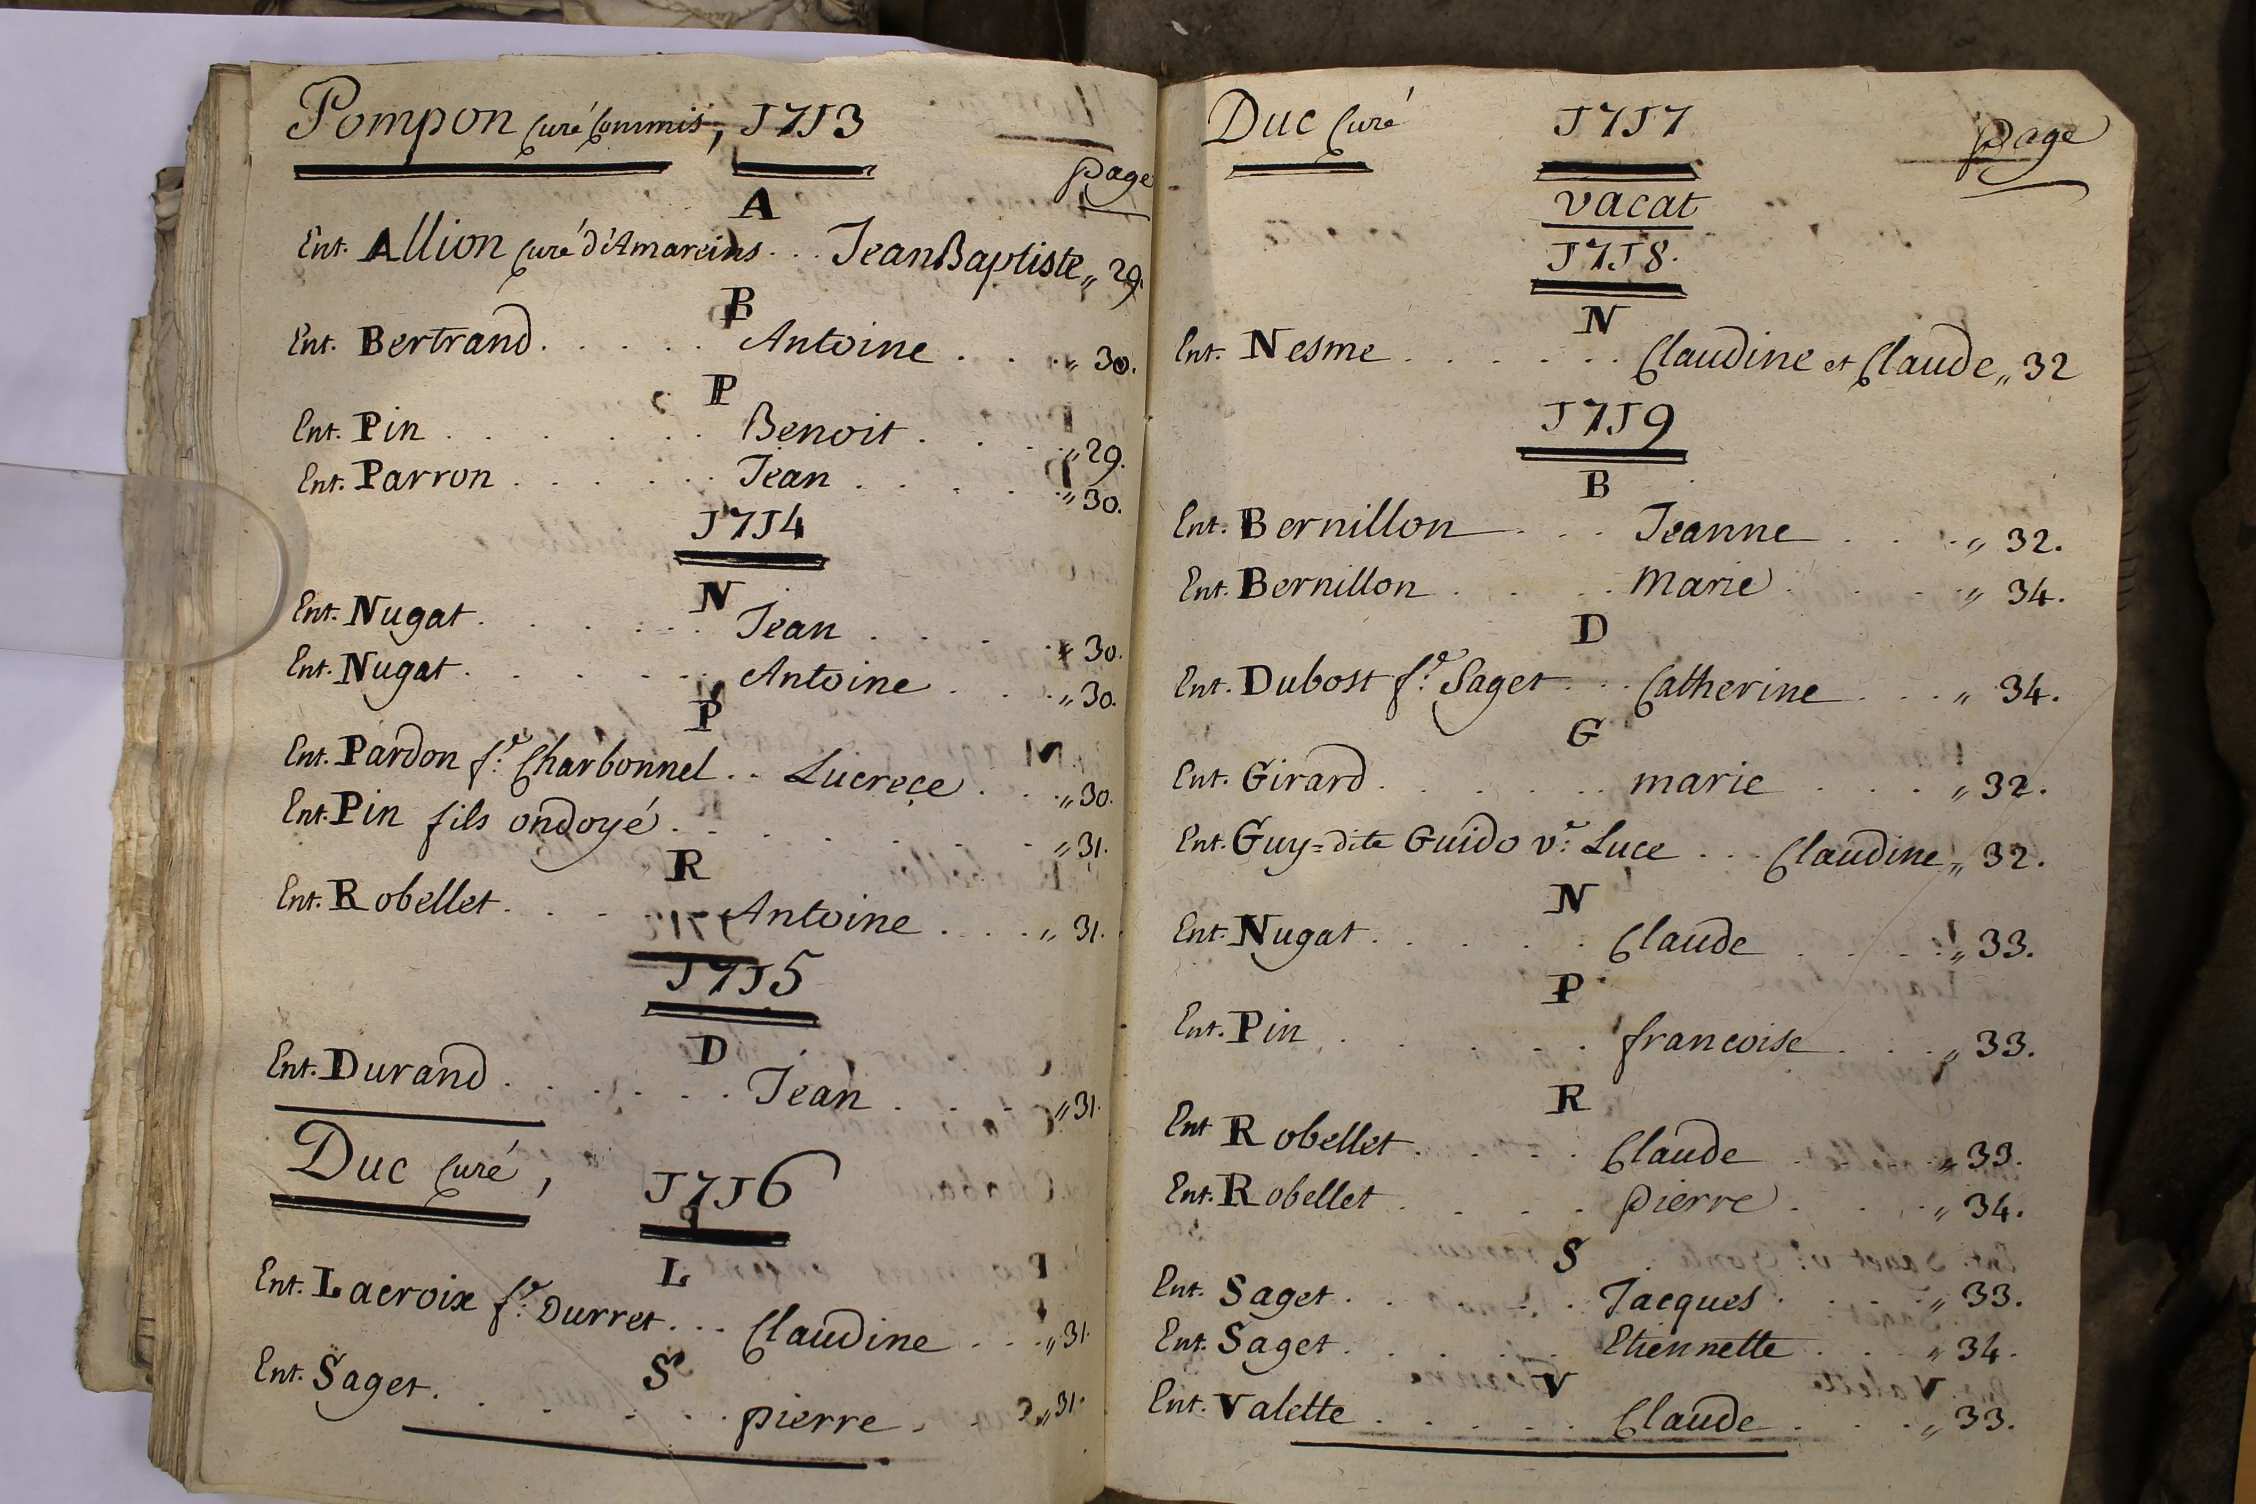 Pompon Curé Commis, 1713
page
A
Ent. Allion Curé d'Amareins . . . Jean Baptiste „ 29.
B
Ent. Bertrand . . . . . Antoine . . . „ 30.
P
Ent. Pin . . . . . . . Benoit . . . „ 29.
Ent. Parron . . . . . . Jean . . . . . „ 30.
1714
N
Ent. Nugat . . . . . . Jean . . . . . „ 30.
Ent. Nugat . . . . . . Antoine . . . . „ 30.
P
Ent. Pardon fe. Charbonnel . . Lucreçe . . . „ 30.
Ent. Pin fils ondoyé . . . . . . . . „ 31.
R
Ent. Robellet . . . . Antoine . . . . „ 31.
1715
D
Ent. Durand . . . . . . Jean . . . . „ 31.
Duc Curé, 1716
L
Ent. Lacroix fe. Durret . . . Claudine . . . „ 31.
S
Ent. Saget . . . . . . pierre . . . „ 31.
Duc Curé 1717
page
vacat
1718.
N
Ent. Nesme . . . . . . Claudine et Claude „ 32
1719
B
Ent. Bernillon . . . Jeanne . . . . „ 32.
Ent. Bernillon . . . . Marie . . . . „ 34.
D
Ent. Dubost fe. Saget . . . Catherine . . . „ 34.
G
Ent. Girard . . . . . . marie . . . . „ 32.
Ent. Guy=dite Guido ve. Luce . . . Claudine „ 32.
N
Ent. Nugat . . . . . Claude . . . . „ 33.
P
Ent. Pin . . . . . . francoise . . . . „ 33.
R
Ent Robellet . . . . Claude . . . . „ 33.
Ent. Robellet . . . . . pierre . . . . „ 34.
S
Ent. Saget . . . . . Jacques . . . . „ 33.
Ent. Saget . . . . . Etiennette . . . „ 34.
V
Ent. Valette . . . . . Claude . . . . „ 33.